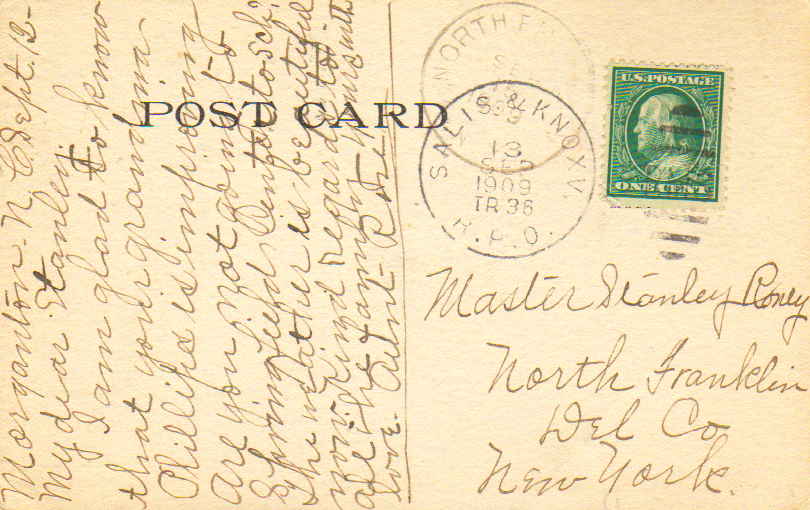 Morganton - N C Sept. 12 -
My dear Stanley
I am glad to know
that your grandma
Phillips is improving
Are you not going to
Springfield Center to sch?
The weather is beautiful
now. Kind regards to
all the family. Yours with
love. Aunt
POST CARD
NORTH
SALIS. & KNOXV.
13
SEP
1909
TR 36
R.P.O.
U.S. POSTAGE
ONE CENT
Master Stanley Roney
North Franklin
Del Co
New York.